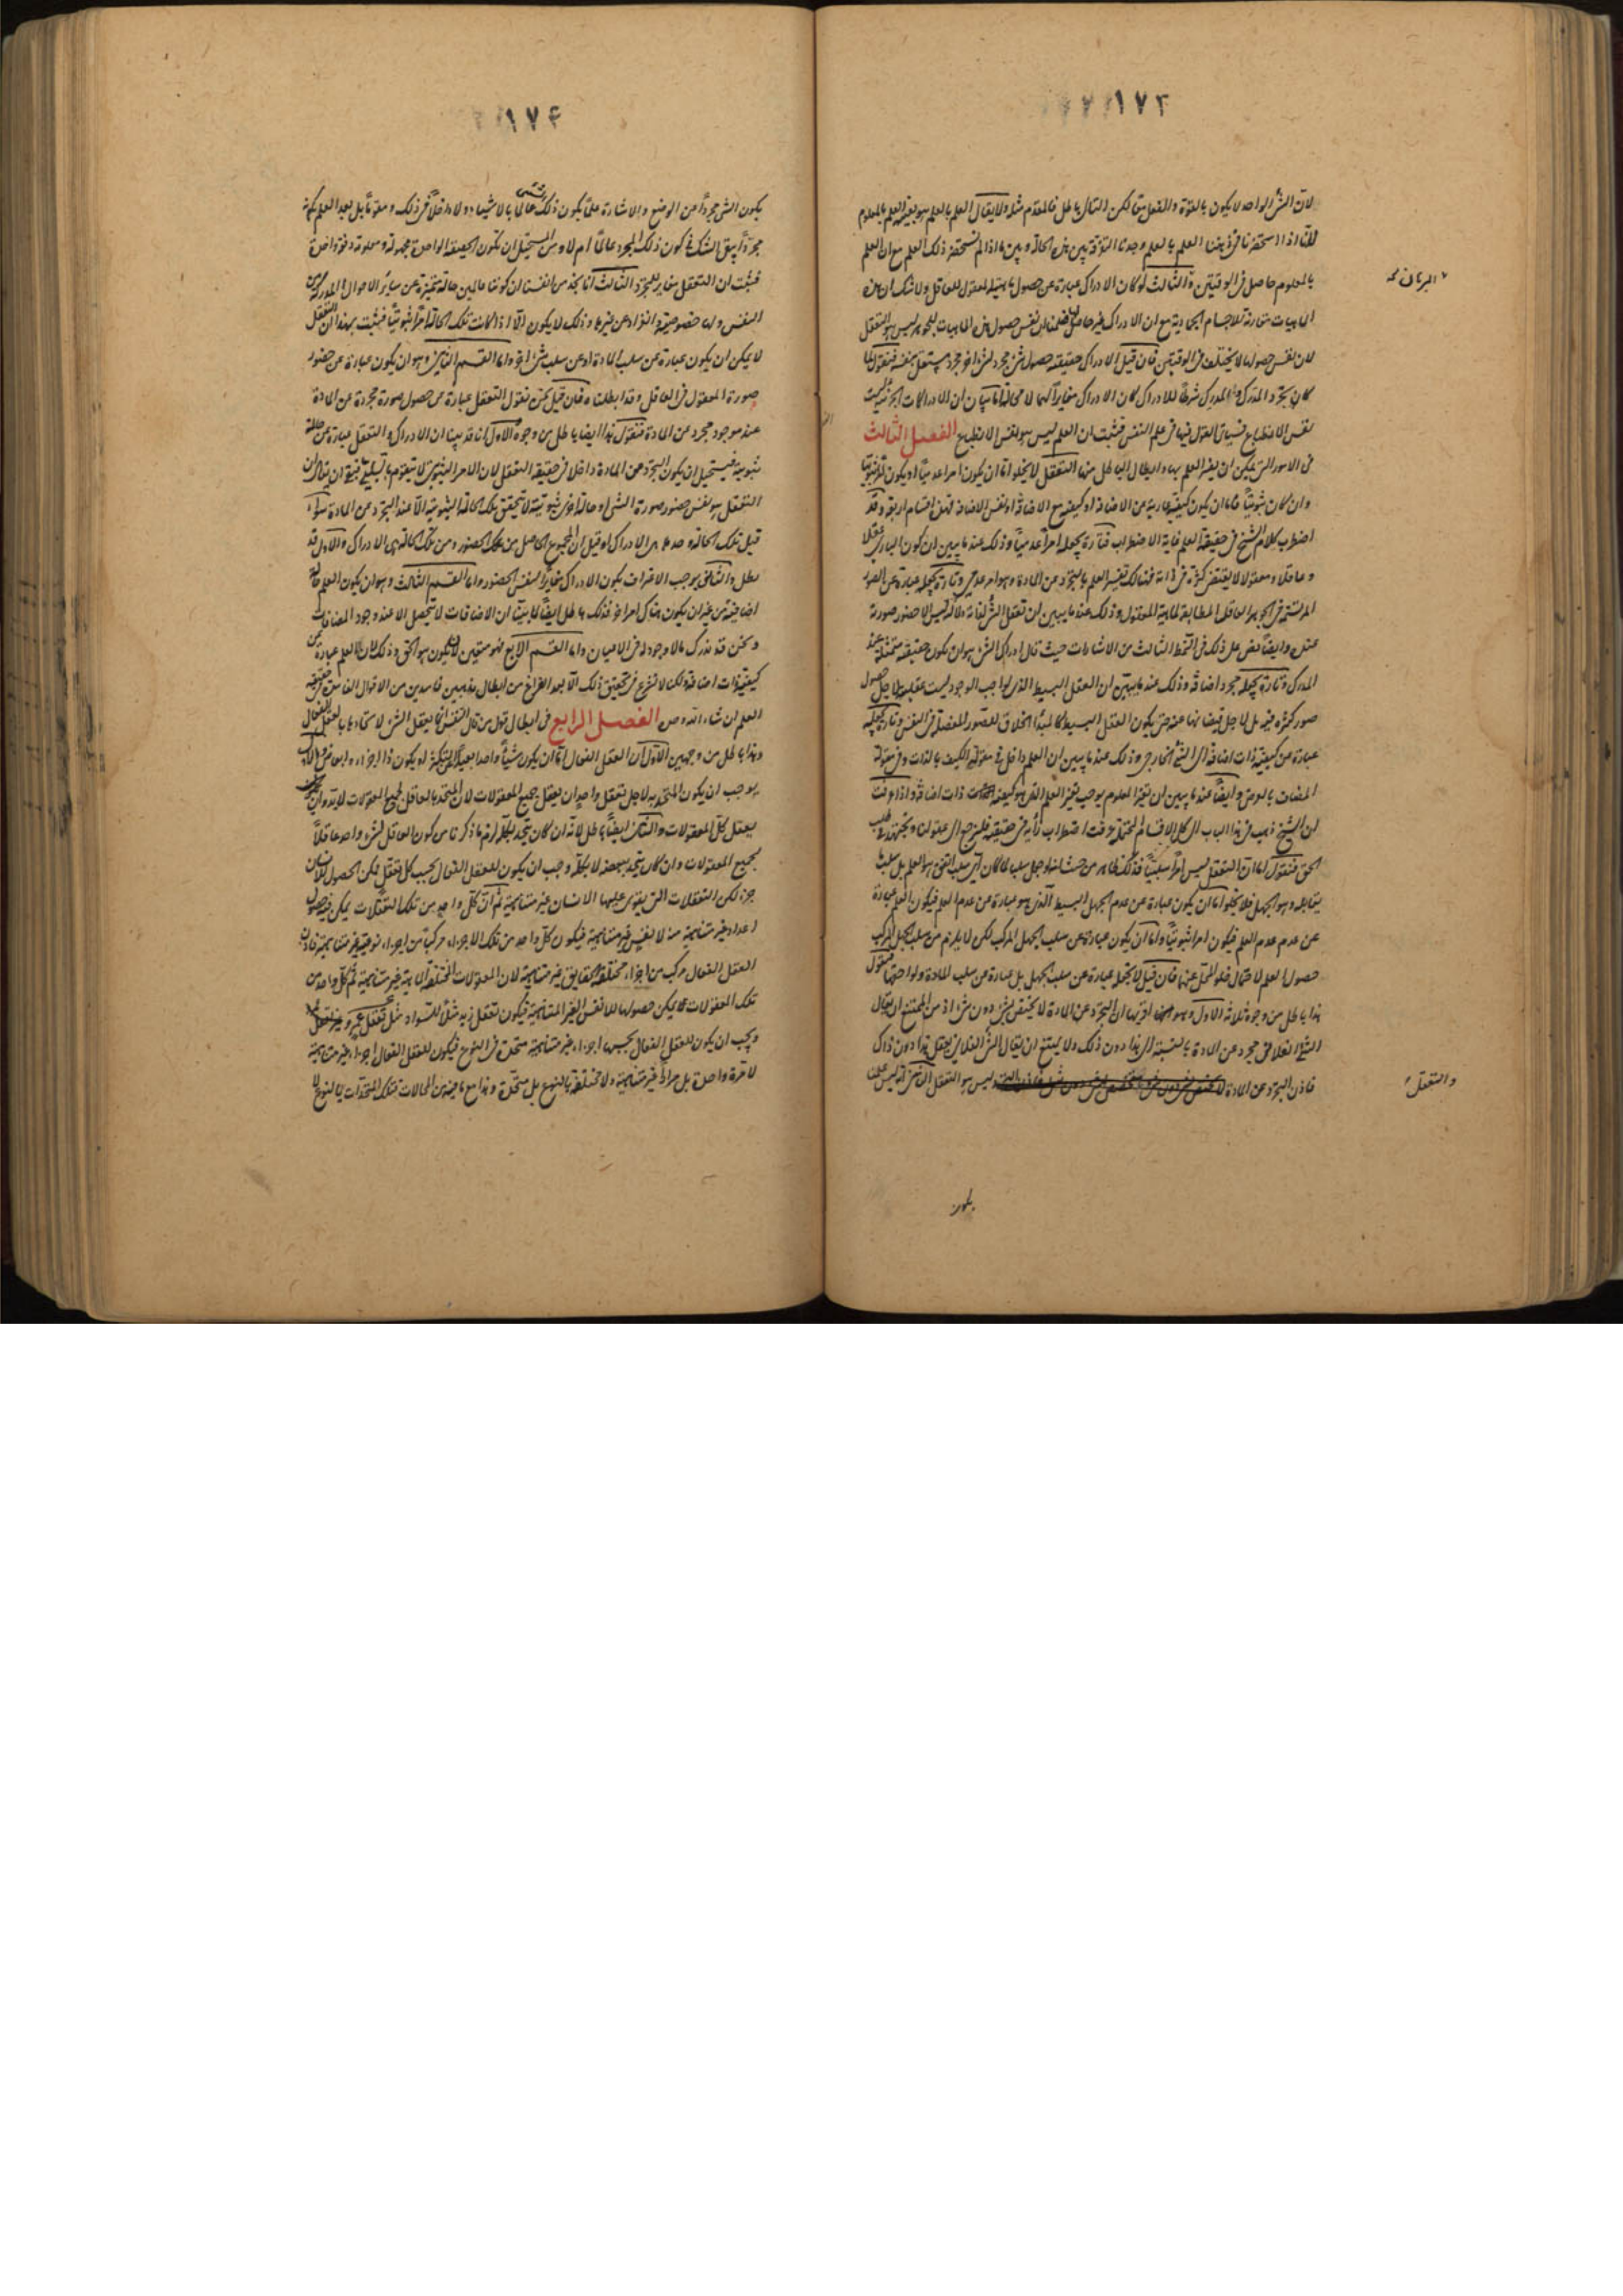 ١٧٣
لان الشئ الواحد لا يكون بالقوة والفعل معا لكن التالى باطل فالمقدم مثله ولا يقال العلم بالعلم هو بعينه العلم بالمعلوم
لانا اذا استحضرنا فى ذهننا العلم بالعلم وجدنا التفرقة بين هذه الحالة وبين ما اذا لم نستحضر ذلك العلم مع ان العلم
بالمعلوم حاصل فى الوقتين والثالث لو كان الادراك عبارة عن حصول ماهية المعقول للعاقل ولا شك ان هذه
الماهيات مقارنة للاجسام الجمادية مع ان الادراك غير حاصل فعلمنا ان نفس حصول هذه الماهيات للجوهر ليس هو التعقل
لان نفس حصولها لا يختلف فى الوقتين فان قيل الادراك حقيقته حصول شئ مجرد لشئ اخر مجرد مستقل بنفسه فنقول لما
كان تجرد المدرك والمدرك شرطا للادراك كان الادراك مغايرا لهما لا محالة اما بيان ان الادراكات الجزئية ليست
نفس الانطباع فسياتى القول فيها فى علم النفس فثبت ان العلم ليس هو نفس الانطباع الفصل الثالث
فى الامور التى يمكن ان يفسر العلم بها وابطال الباطل منها التعقل لا يخلو اما ان يكون امرا عدميا او يكون امرا ثبوتيا
وان كان ثبوتيا فاما ان يكون كيفية عارية عن الاضافة او كيفية مع الاضافة او نفس الاضافة فهذه اقسام اربعة وقد
اضطرب كلام الشيخ فى حقيقة العلم غاية الاضطراب فتارة يجعله امرا عدميا وذلك عندما يبين ان كون البارى عقلا
وعاقلا ومعقولا لا يقتضى كثرة فى ذاته فهنالك تفسير العلم بالتجرد عن المادة وهو امر عدمى وتارة يجعله عبارة عن الصور
المرتسمة فى الجوهر العاقل المطابقة لماهية المعقول وذلك عندما يبين ان تعقل الشئ لذاته ولا لذاته ليس الا حضور صورة
عنده وايضا نص على ذلك فى النمط الثالث من الاشارات حيث قال ادراك الشئ هو ان يكون حقيقته متمثلة عند
المدرك وتارة يجعله مجرد اضافة وذلك عندما يبين ان العقل البسيط الذى لواجب الوجود ليست عقليته لاجل حصول
صور كثيرة فيه بل لاجل فيضانها عنه حتى يكون العقل البسيط كالمبدأ الخلاق للصور المفصلة فى النفس وتارة يجعله
عبارة عن كيفية ذات اضافة الى الشئ الخارجى وذلك عندما يبين ان العلم داخل فى مقولة الكيف بالذات وفى مقولة
المضاف بالعرض وايضا عندما يبين ان تغير المعلوم يوجب تغير العلم الذى هو كيفية ذات اضافة واذا عرفت
ان الشيخ ذهب فى هذا الباب الى كل الاقسام المحتملة وعرفت اضطراب رأيه فى حقيقته فلنرجع الى عقولنا ونجتهد فى طلب
الحق فنقول اما ان التعقل ليس امرا سلبيا فذلك ظاهر من حيث انه لو جعل سلبا لما كان اى سلب اتفق هو العلم بل سلب
يقابله وهو الجهل فلا يخلو اما ان يكون عبارة عن عدم الجهل البسيط الذى هو عبارة عن عدم العلم فيكون العلم عبارة
عن عدم عدم العلم فيكون امرا ثبوتيا واما ان يكون عبارة عن سلب الجهل المركب لكن لا يلزم من سلب الجهل المركب
حصول العلم لاحتمال خلو المحل عنهما فان قيل لا نجعله عبارة عن سلب الجهل بل عبارة عن سلب المادة ولواحقها فنقول
هذا باطل من وجوه ثلاثة الاول وهو اقويها ان التجرد عن المادة لا يختص بشئ دون شئ اذ من الممتنع ان يقال
الشئ الفلانى مجرد عن المادة بالنسبة الى هذا دون ذلك ولا يمتنع ان يقال الشئ الفلانى يعقل هذا دون ذاك
فاذن التجرد عن المادة ليس هو التعقل الثانى انه ليس علمنا
البرهان
والتعقل
يكون
١٧۴
يكون الشئ مجردا عن الوضع والاشارة علما يكون ذلك الشئ عالما بالاشياء ولا داخلا فى ذلك ومقوما بل بعد العلم بكونه
مجردا يبقى الشك فى كون ذلك المجرد عالما ام لا ومن المستحيل ان تكون الحقيقة الواحدة مجهولة ومعلومة دفعة واحدة
فثبت ان التعقل مغاير للتجرد الثالث انا نجد من انفسنا ان كوننا عالمين حالة متميزة عن ساير الاحوال
النفس ولها خصوصية وانفراد عن غيرها وذلك لا يكون الا اذا كانت تلك الحالة امرا ثبوتيا فثبت بهذا ان التعقل
لا يمكن ان يكون عبارة عن سلب المادة او عن سلب شئ اخر واما القسم الثانى وهو ان يكون عبارة عن حضور
صورة المعقول فى العاقل وقد ابطلناه فان قيل نحن نقول التعقل عبارة عن حصول صورة مجردة عن المادة
عند موجود مجرد عن المادة فنقول هذا ايضا باطل من وجوه الاول انا قد بينا ان الادراك والتعقل عبارة عن حالة
ثبوتية فيستحيل ان يكون التجرد عن المادة داخلا فى حقيقة التعقل لان الامر الثبوتى لا يتقوم بالسلبى فبقى ان يقال ان
التعقل هو نفس حضور صورة الشئ او حالة اخرى ثبوتية لا تتحقق تلك الحالة الثبوتية الا عند التجرد عن المادة سواء
قيل تلك الحالة وحدها هى الادراك او قيل ان المجموع الحاصل من ذلك الحضور ومن تلك الحالة هى الادراك والاول قد
بطل والثانى يوجب الاعتراف بكون الادراك مغايرا لنفس الحضور واما القسم الثالث وهو ان يكون العلم حالة
اضافية من غير ان يكون هناك امر اخر فذلك باطل ايضا لما بينا ان الاضافات لا تتحصل الا عند وجود المضافات
ونحن قد ندرك ما لا وجود له فى الاعيان واما القسم الرابع فهو متعين لان يكون هو الحق وذلك لان العلم عبارة عن
كيفية ذات اضافة ولكنا لا نشرع فى تحقيق ذلك الا بعد الفراغ من ابطال مذهبين فاسدين من الاقوال الفاسدة فى حقيقة
العلم ان شاء الله الفصل الرابع فى ابطال قول من قال النفس انما يعقل الشئ لاتحادها بالعقل الفعال
وهذا باطل من وجهين الاول ان العقل الفعال اما ان يكون شيئا واحدا بعيدا عن التكثر او يكون ذا اجزاء وابعاض
يوجب ان يكون المتحد به لاجل تعقل واحد ان يعقل جميع المعقولات لان المتحد بالعاقل لجميع المعقولات لابد وان
يعقل كل المعقولات والثانى ايضا باطل لانه ان كان يتحد بكله لزم ما ذكرنا من كون العاقل لشئ واحد عاقلا
بجميع المعقولات وان كان يتحد ببعضه لا بكله وجب ان يكون للعقل الفعال بحسب كل تعقل ممكن الحصول للانسان
جزء لكن التعقلات التى يقوى عليها الانسان غير متناهية ثم ان كل واحد من تلك التعقلات يمكن فيه حصول
اعداد غير متناهية منه لانفس غير متناهية فيكون كل واحد من تلك الاجزاء مركبا من اجزاء نوعية غير متناهية فاذن
العقل الفعال مركب من اجزاء مختلفة الحقايق غير متناهية لان المعقولات المختلفة الماهية غير متناهية ثم كل واحد من
تلك المعقولات مما يمكن حصولها للانفس الغير المتناهية فيكون تعقل زيد مثلا للسواد مثل تعقل عمرو
ويجب ان يكون للعقل الفعال بحسبها اجزاء غير متناهية متحدة فى النوع فيكون للعقل الفعال اجزاء غير متناهية
لا مرة واحدة بل مرارا غير متناهية ولا مختلفة بالنوع بل متحدة وهذا مع ما فيه من المحالات فتلك المتحدات بالنوع لا